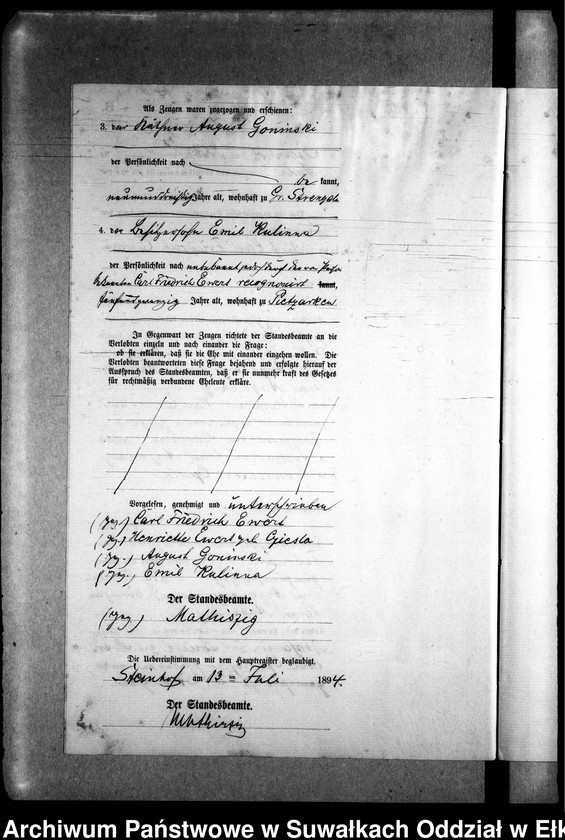 Als Zeugen waren zugezogen und erschienen:
3. der Käthner August Goninski
der Persönlichkeit nach
be kannt,
neununddreißig Jahre alt, wohnhaft zu Gr. Strengeln
4. der Besitzersohn Emil Kulinna
der Persönlichkeit nach unbekannt, jedoch durch den
Carl Friedrich Ewert recognoscirt kannt,
fünfundzwanzig Jahre alt, wohnhaft zu Pietzarken
In Gegenwart der Zeugen richtete der Standesbeamte an die
Verlobten einzeln und nach einander die Frage:
ob sie erklären, daß sie die Ehe mit einander eingehen wollen. Die
Verlobten beantworteten diese Frage bejahend und erfolgte hierauf der
Ausspruch des Standesbeamten, daß er sie nunmehr kraft des Gesetzes
für rechtmäßig verbundene Eheleute erkläre.
Vorgelesen, genehmigt und unterschrieben
(gez.) Carl Friedrich Ewert
(gez.) Henriette Ewert geb. Giesla
(gez.) August Goninski
(gez.) Emil Kulinna
Der Standesbeamte.
(gez.) Mathiszig
Die Uebereinstimmung mit dem Hauptregister beglaubigt.
Steinhof am 13 ten Juli 1894.
Der Standesbeamte.
Mathiszig
Archiwum Państwowe w Suwałkach Oddział w Ełk